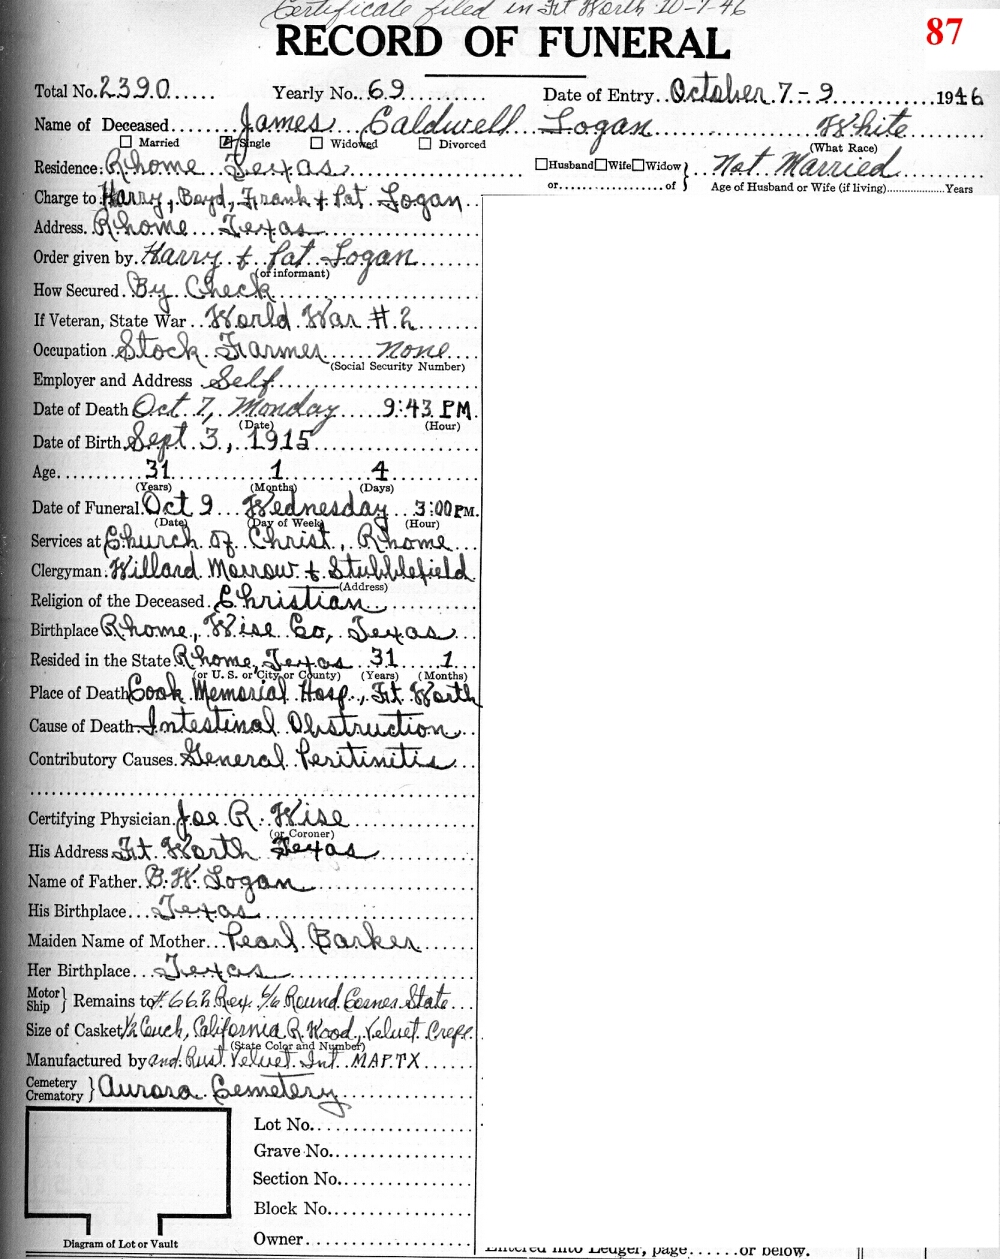 Certificate filed in Ft Worth 10-9-46
87
RECORD OF FUNERAL
Total No. 2390 Yearly No. 69 Date of Entry October 7-9 1946
Name of Deceased James Caldwell Logan White
☐ Married ☑ Single ☐ Widowed ☐ Divorced (What Race)
Residence: Rhome Texas ☐ Husband ☐ Wife ☐ Widow } Not Married
or of } Age of Husband or Wife (if living) Years
Charge to Harry, Boyd, Frank & Pat Logan
Address. Rhome Texas
Order given by. Harry & Pat Logan
(or informant)
How Secured. By Check
If Veteran, State War World War # 2
Occupation Stock Farmer none
(Social Security Number)
Employer and Address Self
Date of Death Oct 7, Monday 9:43 PM.
(Date) (Hour)
Date of Birth Sept 3, 1915
Age 31 1 4
(Years) (Months) (Days)
Date of Funeral Oct 9 Wednesday 3:00 PM.
(Date) (Day of Week) (Hour)
Services at Church of Christ, Rhome
Clergyman. Willard Morrow & Stubblefield
(Address)
Religion of the Deceased. Christian
Birthplace Rhome, Wise Co, Texas
Resided in the State Rhome, Texas 31 1
(or U. S. or City or County) (Years) (Months)
Place of Death Cook Memorial Hosp., Ft Worth
Cause of Death Intestinal Obstruction
Contributory Causes. General Peritinitis
Certifying Physician. Joe R. Wise
(or Coroner)
His Address Ft. Worth Texas
Name of Father. B.W. Logan
His Birthplace Texas
Maiden Name of Mother Pearl Barker
Her Birthplace Texas
Motor Ship } Remains to # 662 Rex 6/6 Round Corner State
Size of Casket ½ Couch, California R. Wood, Velvet Crepe
(State Color and Number)
Manufactured by and Rust Velvet Int. MAP.TX
Cemetery Crematory } Aurora Cemetery
Lot No.
Grave No.
Section No.
Block No.
Owner
Diagram of Lot or Vault
Entered into Ledger, page or below.